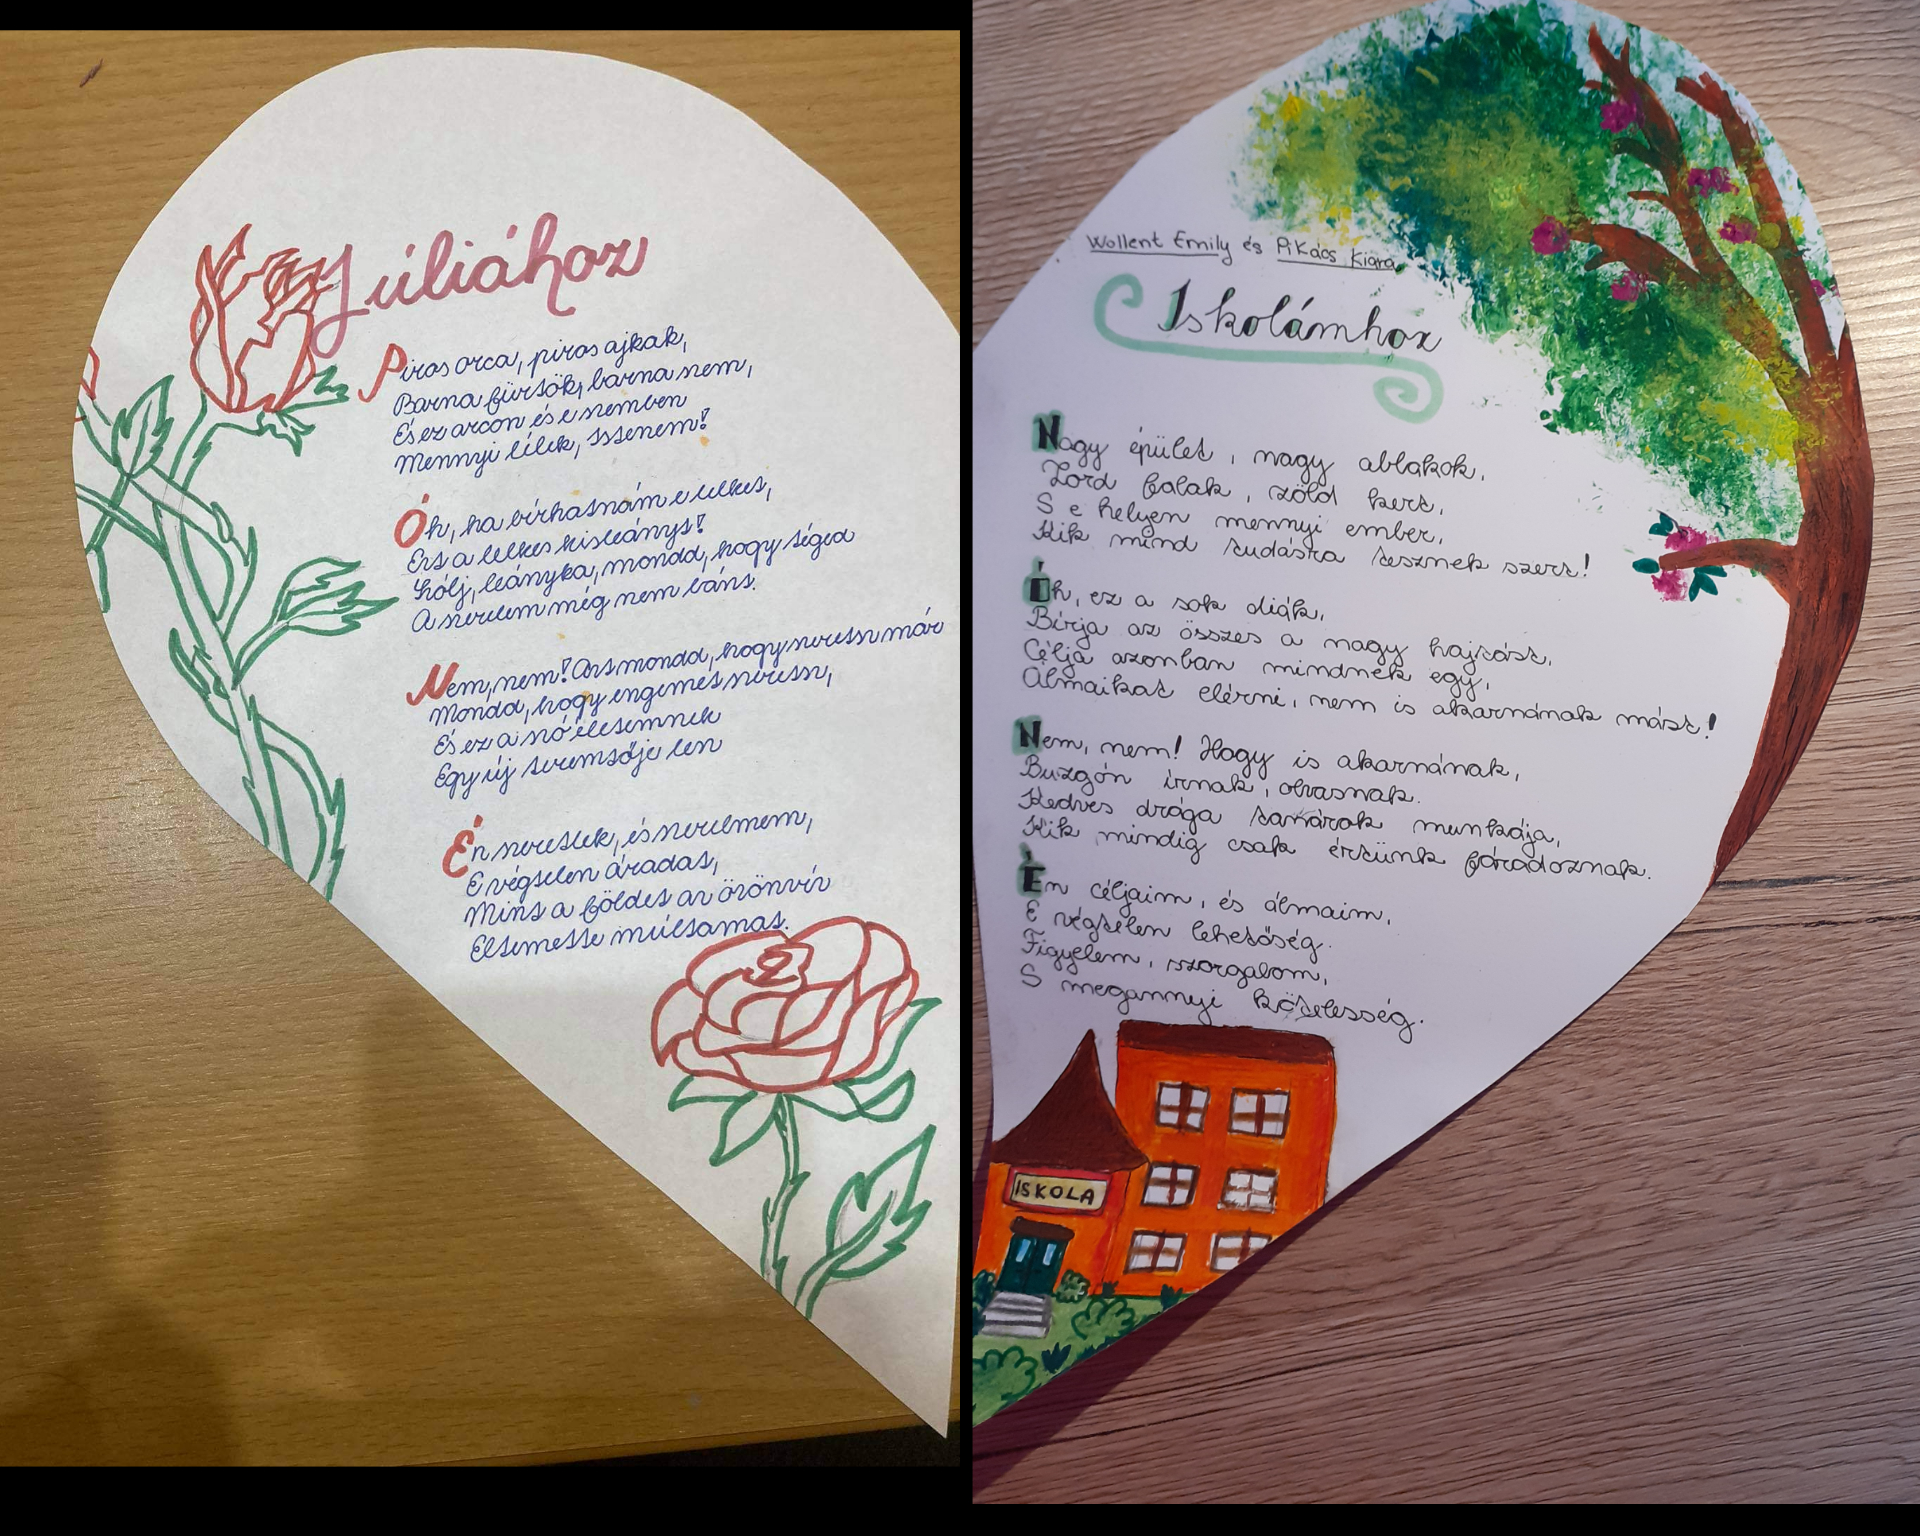 Júliához
Piros orca, piros ajkak,
Barna fürtök, barna szem,
És ez arcon és e szemben
Mennyi lélek, Istenem!
Óh, ha bírhatnám e lelket,
Ezt a lelkes kisleányt!
Szólj, leányka, mondd, hogy téged
A szerelem még nem bánt.
Nem, nem! Azt mondd, hogy szeretsz már
Mondd, hogy engemet szeretsz,
És ez a szó életemnek
Egy új teremtője lesz
Én szeretlek, és szerelmem,
E végtelen áradat,
Mint a földet az özönvíz
Eltemette múltamat.
Wollent Emily és Pikács Kiara
Iskolámhoz
Nagy épület, nagy ablakok,
Zord falak, zöld kert,
S e helyen mennyi ember,
Kik mind tudásra tesznek szert!
Óh, ez a sok diák,
Bírja az összes a nagy hajtást,
Célja azonban mindnek egy,
Álmaikat elérni, nem is akarnának mást!
Nem, nem! Hogy is akarnának,
Buzgón írnak, olvasnak.
Kedves drága tanárok munkája,
Kik mindig csak értünk fáradoznak.
Én céljaim, és álmaim,
E végtelen lehetőség.
Figyelem, szorgalom,
S megannyi kötelesség.
ISKOLA